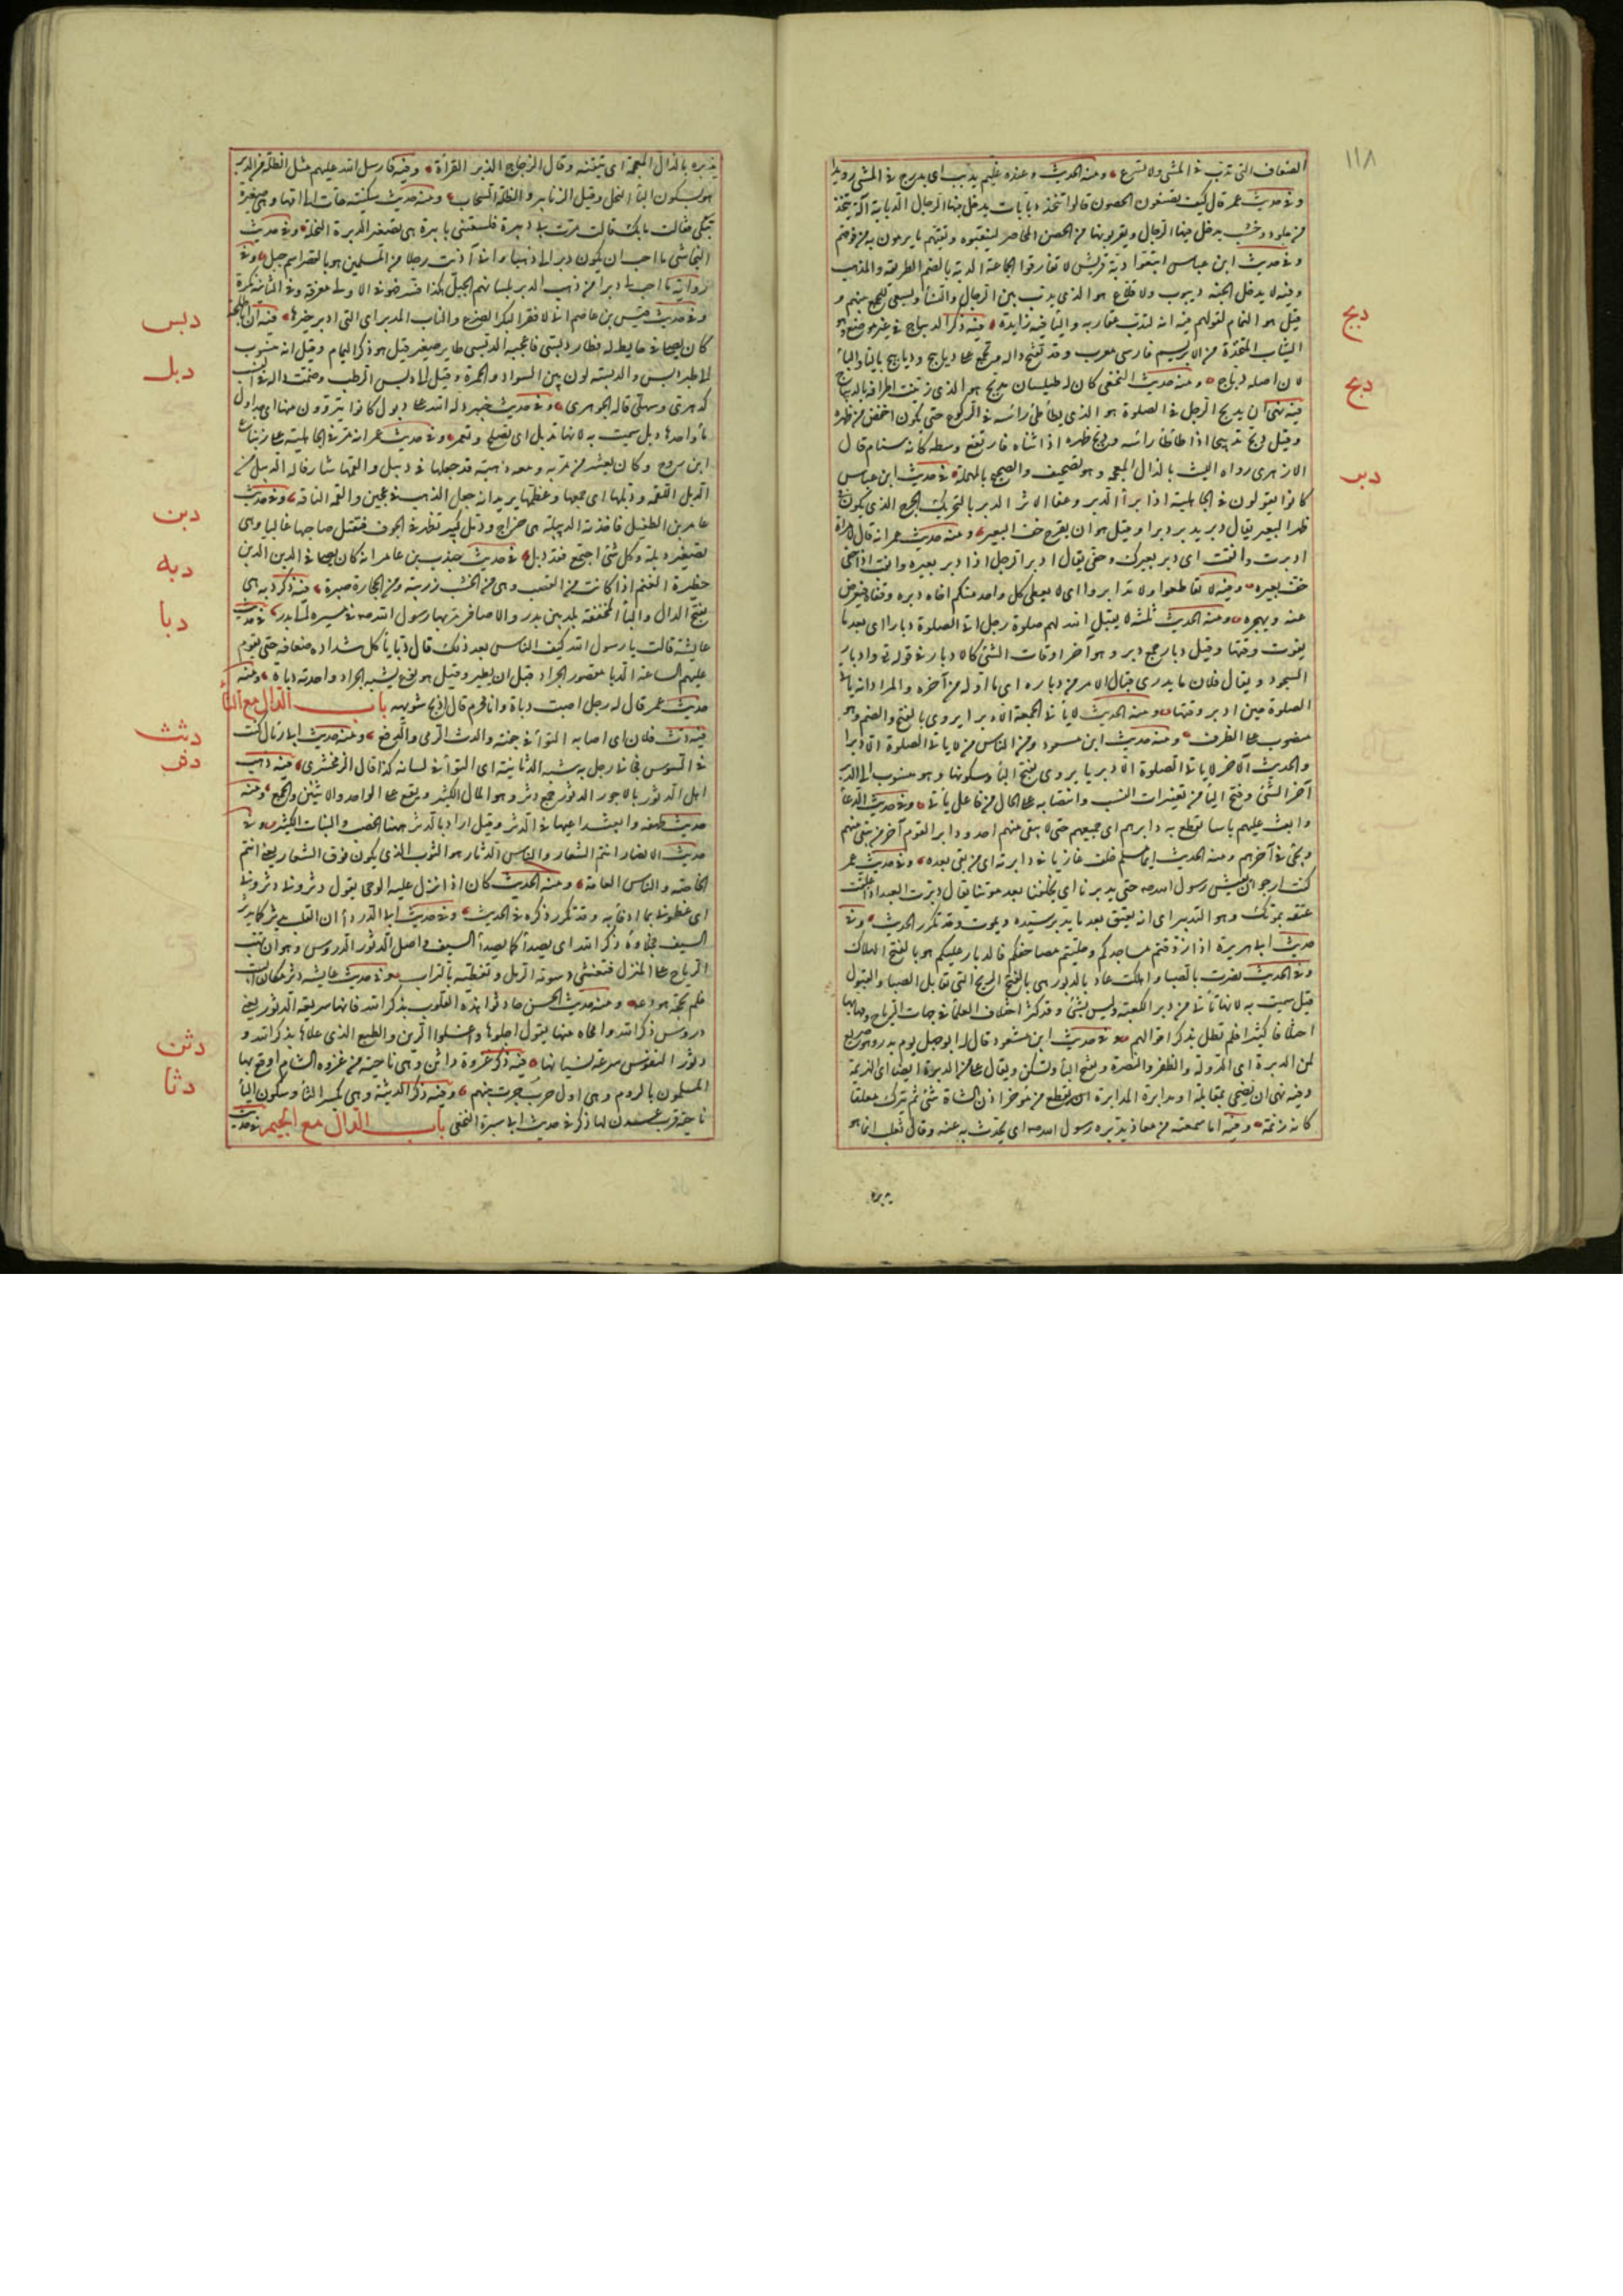 ١١٨
الضعاف التى تدب فى المشى ولا تسرع ومنه الحديث وعنده غليم يدبب اى يدرج فى المشى رويدا
وفى حديث عمر قال كيف تصنعون بالحصون قالوا نتخذ دبابات يدخل فيها الرجال الدبابة آلة تتخذ
من جلود وخشب يدخل فيها الرجال ويقربونها من الحصن المحاصر لينقبوه وتقيهم ما يرمون به من فوقهم
وفى حديث ابن عباس اتبعوا دبة قريش لا تفارقوا الجماعة الدبة بالضم الطريقة والمذهب
وفيه لا يدخل الجنة ديبوب ولا قلاع هو الذى يدب بين الرجال والنساء ويسعى للجمع بينهم و
قيل هو النمام لقولهم فيه انه لتدب عقاربه والياء فيه زايدة فيه ذكر الديباج فى غير موضع وهو
دبج
الثياب المتخذة من الابريسم فارسى معرب وقد تفتح داله ويجمع على دباييج وديابيج بالياء والباء
لان اصله دباج ومنه حديث النخعى كان له طيلسان مدبج هو الذى زينت اطرافه بالديباج
دبح
فيه نهى ان يدبح الرجل فى الصلوة هو الذى يطأطئ رأسه فى الركوع حتى يكون اخفض من ظهره
وقيل دبح تدبيحا اذا طأطأ رأسه ودبح ظهره اذا ثناه فارتفع وسطه كأنه سنام قال
الازهرى رواه الليث بالذال المعجمة وهو تصحيف والصحيح بالمهملة فى حديث ابن عباس
دبر
كانوا يقولون فى الجاهلية اذا برأ الدبر وعفا الاثر الدبر بالتحريك الجرح الذى يكون فى
ظهر البعير يقال دبر يدبر دبرا وقيل هو ان يقرح خف البعير ومنه حديث عمر انه قال لامرأة
ادبرت وانقبت اى دبر بعيرك وحفى يقال ادبر الرجل اذا دبر بعيره وانقب اذا حفى
خف بعيره وفيه لا تقاطعوا ولا تدابروا اى لا يعطى كل واحد منكم اخاه دبره وقفاه فيعرض
عنه ويهجره ومنه الحديث ثلثة لا يقبل الله لهم صلوة رجل اتى الصلوة دبارا اى بعد ما
يفوت وقتها وقيل دبار جمع دبر وهو آخر اوقات الشئ كالادبار فى قوله تعالى وادبار
السجود ويقال فلان ما يدرى قبال الامر من دباره اى ما اوله من آخره والمراد انه يأتى
الصلوة حين ادبر وقتها ومنه الحديث لا يأتى الجمعة الا دبرا يروى بالفتح والضم وهو
منصوب على الظرف ومنه حديث ابن مسعود ومن الناس من لا يأتى الصلوة الا دبرا
والحديث الآخر لا يأتى الصلوة الا دبريا يروى بفتح الباء وسكونها وهو منسوب الى الدبر
آخر الشئ وفتح الباء من تغييرات النسب وانتصابه على الحال من فاعل يأتى وفى حديث الدعاء
وابعث عليهم بأسا تقطع به دابرهم اى جميعهم حتى لا يبقى منهم احد ودابر القوم آخر من يبقى منهم
ويجئ فى آخرهم ومنه الحديث ايما مسلم خلف غازيا فى دابرته اى من بقى بعده وفى حديث عمر
كنت ارجو ان يعيش رسول الله حتى يدبرنا اى يخلفنا بعد موتنا يقال دبرت العبد اذا علقت
عتقه بموتك وهو التدبير اى انه يعتق بعد ما يدبره سيده ويموت وقد تكرر الحديث وفى
حديث ابى هريرة اذا زوقتم مساجدكم وحليتم مصاحفكم فالدبار عليكم هو بالفتح الهلاك
وفى الحديث نصرت بالصبا واهلكت عاد بالدبور هى بالفتح الريح التى تقابل الصبا والقبول
قيل سميت به لانها تأتى من دبر الكعبة وليس بشئ وقد كثر اختلاف العلماء فى جهات الرياح ومهابها
اختلافا كثيرا فلم نطل بذكر اقوالهم وفى حديث ابن مسعود قال له ابو جهل يوم بدر وهو صريع
لمن الدبرة اى الدولة والظفر والنصرة وبفتح الباء وتسكن ويقال على من الدبرة ايضا اى الهزيمة
وفيه نهى ان يضحى بمقابلة او مدابرة المدابرة ان يقطع من مؤخر اذن الشاة شئ ثم يترك معلقا
كانه زنمة وفيه اما سمعته من معاذ يدبره رسول الله اى يحدث به عنه وقال ثعلب انما هو
يذبره
يذبره بالذال المعجمة اى يتقنه وقال الزجاج الذبر القراءة وفيه فارسل الله عليهم مثل الظلة من الدبر
هو بسكون الباء النحل وقيل الزنابير والظلة السحاب ومنه حديث سكينة جاءت الى امها وهى صغيرة
تبكى فقالت ما بك قالت مرت بى دبيرة فلسعتنى بابيرة هى تصغير الدبرة النحلة وفى حديث
النجاشى ما احب ان يكون دبرا لى ذهبا وانى آذيت رجلا من المسلمين هو بالقصر اسم جبل وفى
رواية ما احب ان لى دبرا من ذهب الدبر بلسانهم الجبل هكذا فسر فهو فى الاولى معرفة وفى الثانية نكرة
وفى حديث قيس بن عاصم انى لافقر البكر الضرع والناب المدبر اى التى ادبر خيرها فيه ان ابا طلحة
دبس
كان يصلى فى حايط له فطار دبسى فاعجبه الدبسى طاير صغير قيل هو ذكر اليمام وقيل انه منسوب
الى طير دبس والدبسة لون بين السواد والحمرة وقيل الى دبس الرطب وضمت داله فى النسب
كدهرى وسهلى قاله الجوهرى وفى حديث خيبر دله الله على دبول كانوا يتروون منها اى جداول
دبل
ماء واحدها دبل سميت به لانها تدبل اى تصلح وتعمر وفى حديث عمر انه مر فى الجاهلية على زنباع
ابن روح وكان يعشر من مر به ومعه ذهبة فجعلها فى دبيل والقمها شارفا له الدبيل من
الدبل اللقمة ودبلها اى جمعها وعظمها يريد انه جعل الذهب فى عجين والقمه الناقة وفى حديث
عامر بن الطفيل فاخذته الدبيلة هى خراج ودمل كبير تظهر فى الجوف فتقتل صاحبها غالبا وهى
دبن
تصغير دبلة وكل شئ اجتمع فقد دبل فى حديث جندب بن عامر انه كان يصلى فى الدبن الدبن
حظيرة الغنم اذا كانت من القصب وهى من الخشب زريبة ومن الحجارة صيرة فيه ذكر دبه هى
دبه
بفتح الدال والباء المخففة بلد بين بدر والاصافر مر بها رسول الله فى مسيره الى بدر فى حديث
دبا
عايشة قالت يا رسول الله كيف الناس بعد ذلك قال دبا يأكل شداده ضعافه حتى تقوم
عليهم الساعة الدبا مقصور الجراد قبل ان يطير وقيل هو نوع يشبه الجراد واحدته دباة ومنه
حديث عمر قال له رجل اصبت دباة وانا محرم قال اذبح شويهة باب الدال مع الثاء
دثث
فيه دث فلان اى اصابه التواء فى جنبه والدث الرمى والدفع ومنه حديث ابى رئال كنت
فى السوس فجاءنى رجل به شبه الدثانية اى التواء فى لسانه كذا قال الزمخشرى فيه ذهب
دثر
اهل الدثور بالاجور الدثور جمع دثر وهو المال الكثير ويقع على الواحد والاثنين والجمع ومنه
حديث طهفة وابعث راعيها فى الدثر وقيل اراد بالدثر ههنا الخصب والنبات الكثير وفى
حديث الانصار انتم الشعار والناس الدثار هو الثوب الذى يكون فوق الشعار يعنى انتم
الخاصة والناس العامة ومنه الحديث كان اذا نزل عليه الوحى يقول دثرونى دثرونى
اى غطونى بما ادفأ به وقد تكرر ذكره فى الحديث وفى حديث ابى الدرداء ان القلب يدثر كما يدثر
السيف فجلاؤه ذكر الله اى يصدأ كما يصدأ السيف واصل الدثور الدروس وهو ان تهب
الرياح على المنزل فتغشى رسومه الرمل وتغطيه بالتراب وفى حديث عايشة دثر مكان البيت
فلم يحجه هود ومنه حديث الحسن حادثوا هذه القلوب بذكر الله فانها سريعة الدثور يعنى
دروس ذكر الله وامحاءه منها يقول اجلوها واغسلوا الرين والطبع الذى علاها بذكر الله و
دثن
دثور النفوس سرعة نسيانها فيه ذكر غزوة داثن وهى ناحية من غزة الشام اوقع بها
دثا
المسلمون بالروم وهى اول حرب جرت بينهم وفيه ذكر الدثينة وهى بكسر الثاء وسكون الياء
ناحية قرب عدن لها ذكر فى حديث ابى سبرة النخعى باب الدال مع الجيم فى حديث